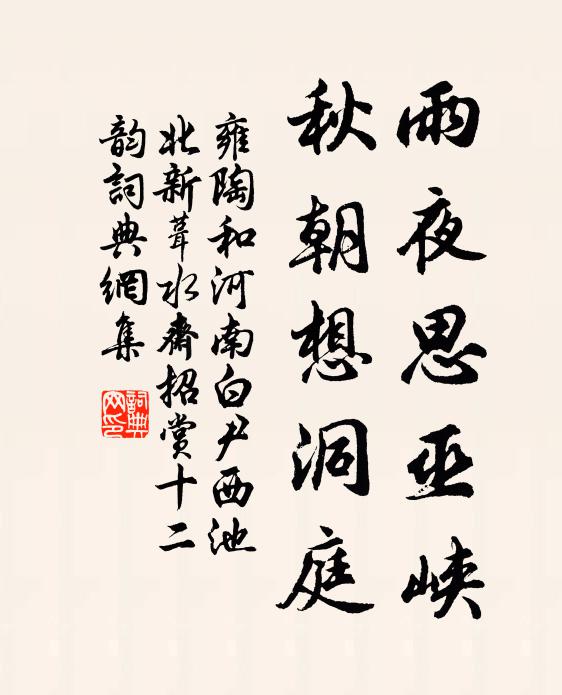 雨夜思巫峽
秋朝想洞庭
雍陶和河南白尹西池
北新葺水齋招賞十二
韵詞典網集
詞典
网印